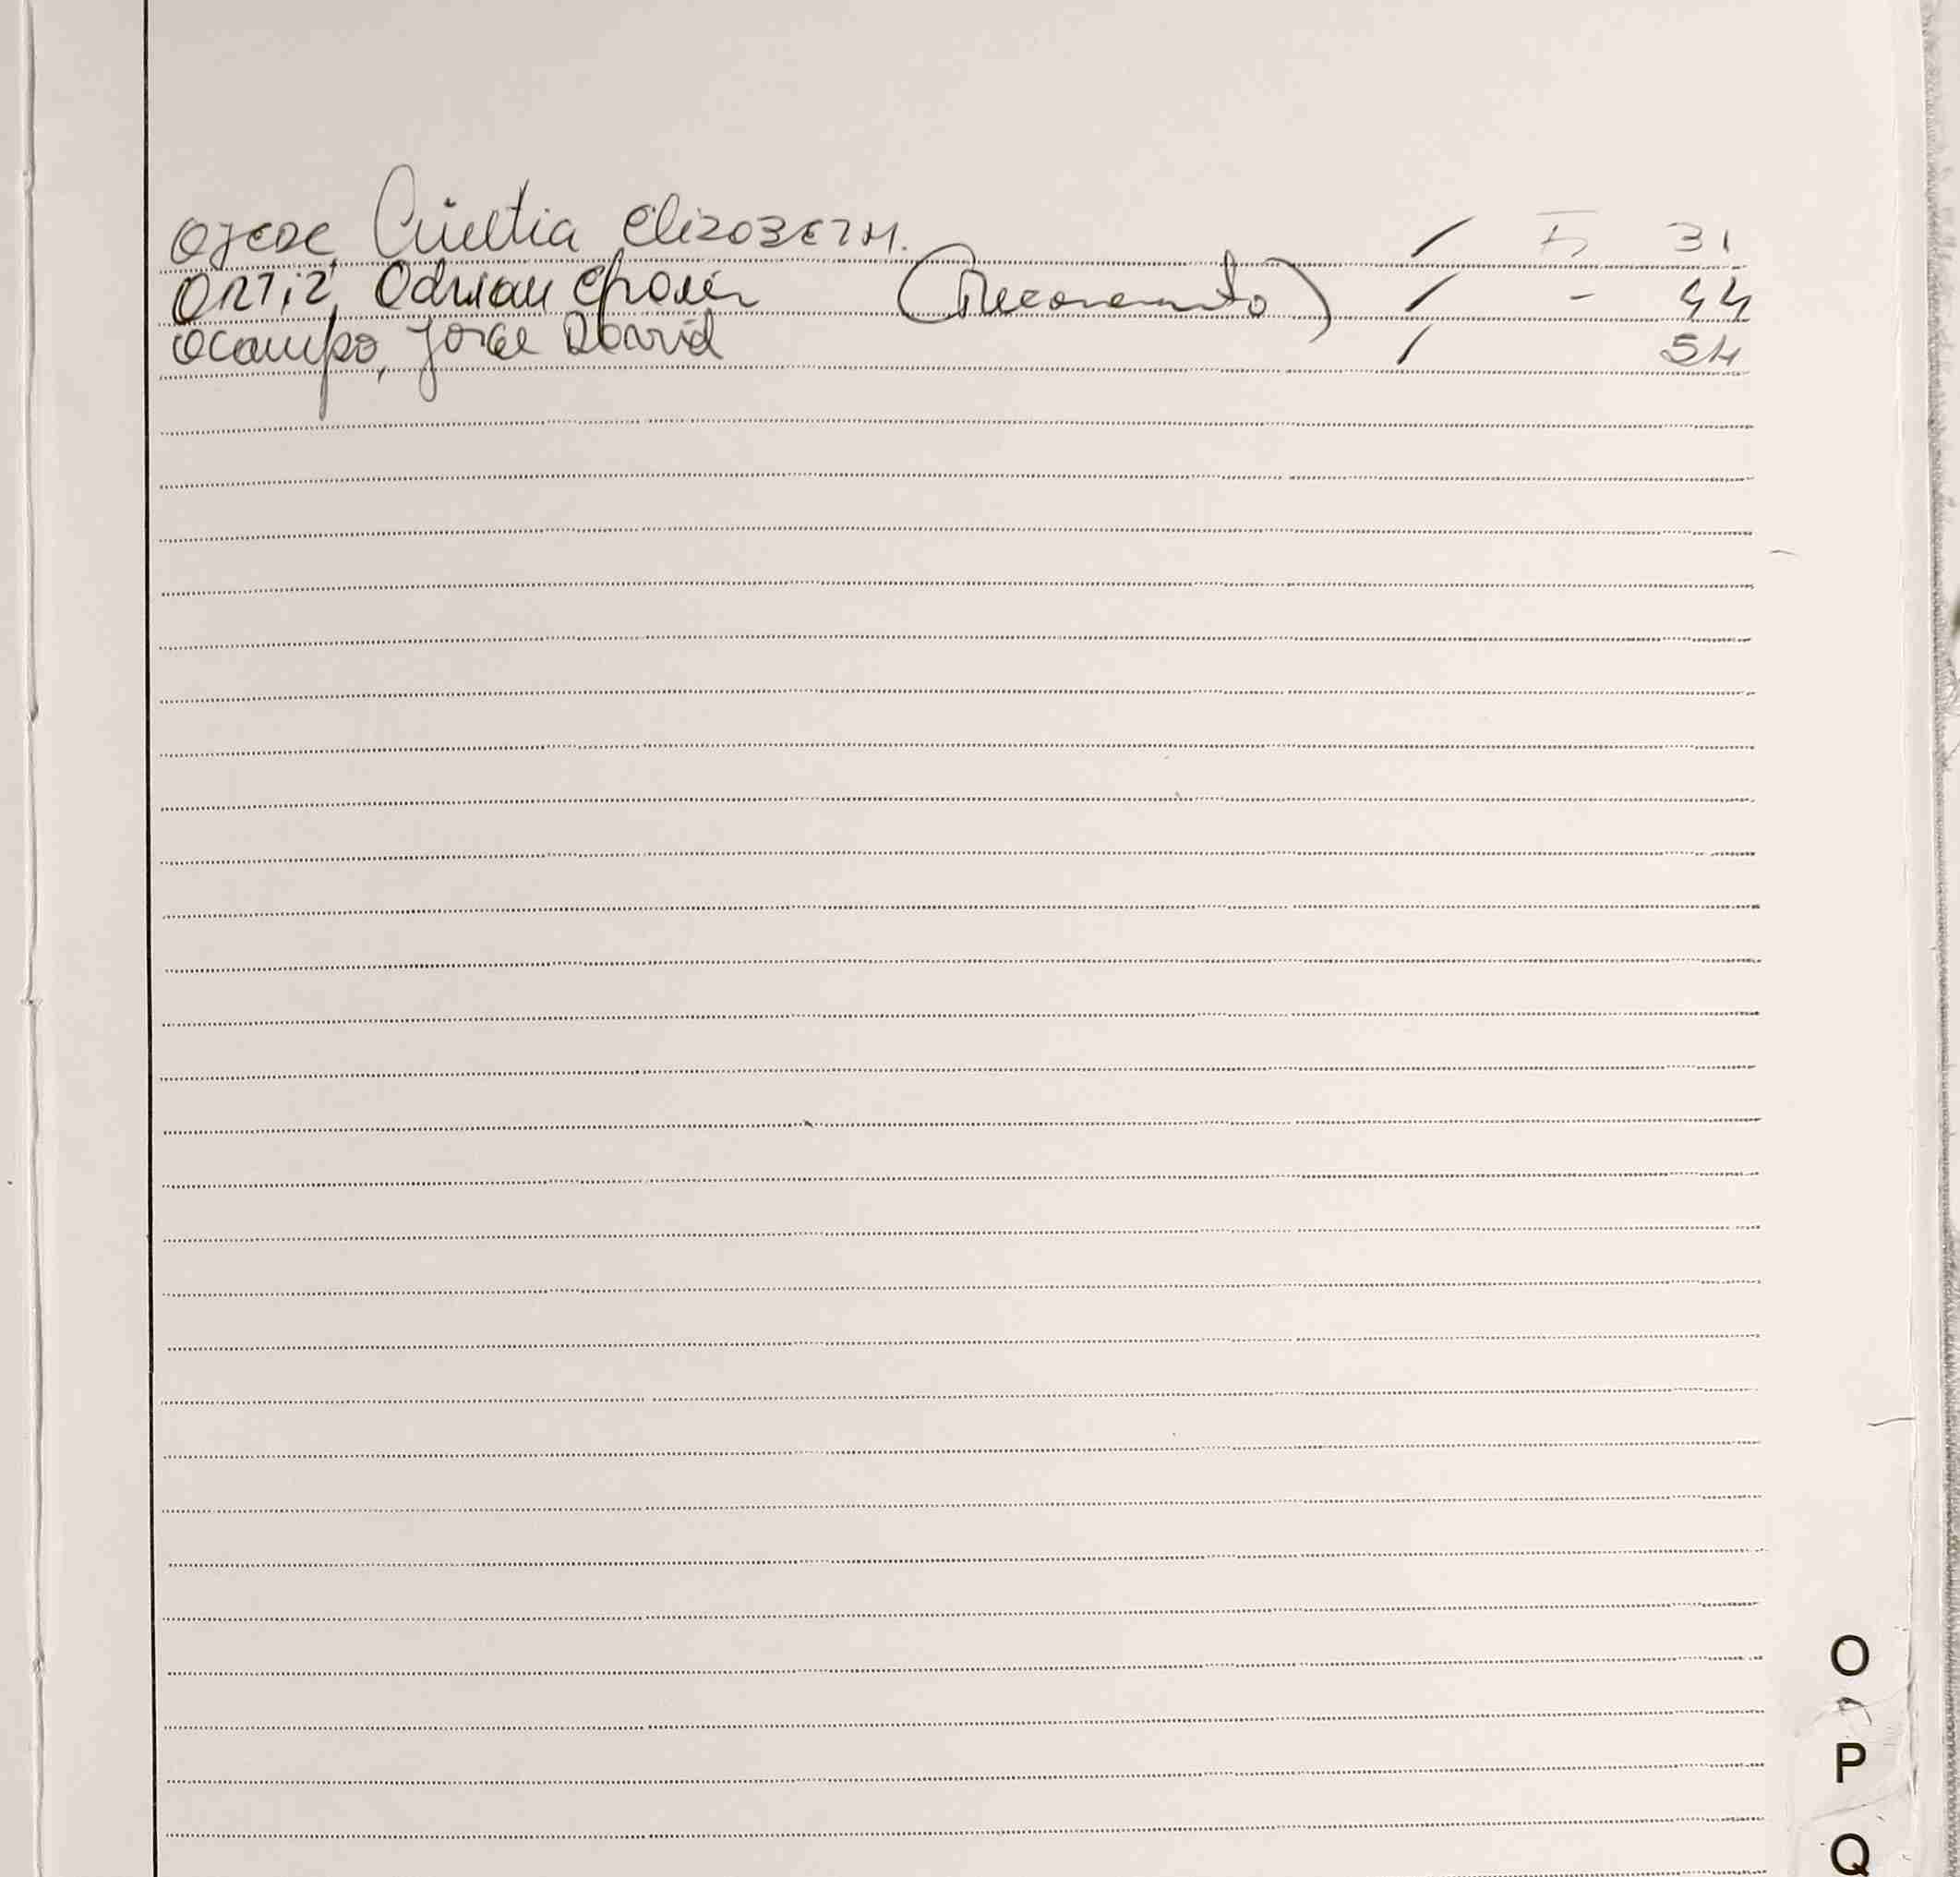 OJEDA, Cintia Elizabeth. / 31
ORTIZ, Adrian (Reconocimiento) / - 44
Ocampo, Jorge David / 54
O
P
Q